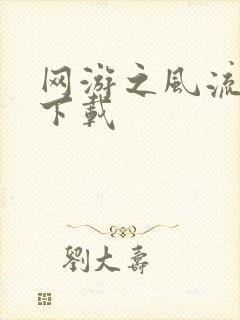 网游之风流
下载
劉大壽